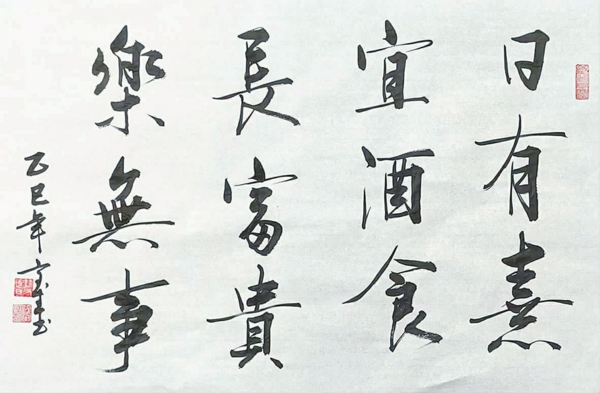 日有熹
宜酒食
長富貴
樂無事
乙巳年